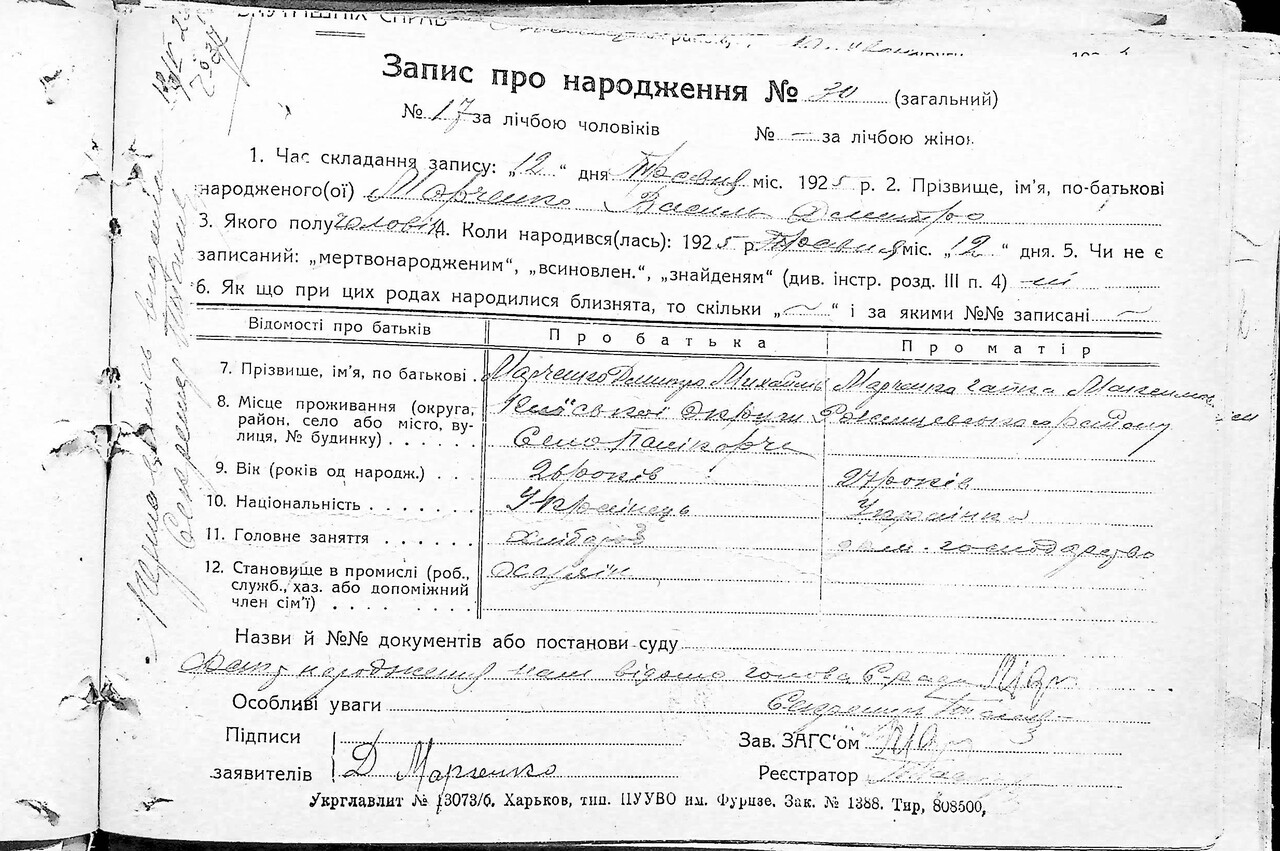 ВНУТРІШНІХ СПРАВ
Запис про народження № 30 (загальний)
№ 17 за лічбою чоловіків № — за лічбою жінок
1. Час складання запису: „12“ дня Травня міс. 1925 р. 2. Прізвище, ім’я, по-батькові
народженого(ої) Марченко Василь Дмитро
3. Якого полу чоловік 4. Коли народився(лась): 1925 р. Травня міс. „12“ дня. 5. Чи не є
записаний: „мертвонародженим“, „всиновлен.“, „знайденям“ (див. інстр. розд. III п. 4) ні
6. Як що при цих родах народилися близнята, то скільки „~“ і за якими №№ записані ~
Відомості про батьків Про батька Про матір
7. Прізвище, ім’я, по батькові . Марченко Дмитро Михайль Марченко Максимов
8. Місце проживання (округа, Київської Округи району
район, село або місто, ву-
лиця, № будинку) . . . . . . Село Панікарчи
9. Вік (років од народж.) . . . 26 років 27 років
10. Національність . . . . . . . Українець Українка
11. Головне заняття . . . . . . хлібороб дом. господарство
12. Становище в промислі (роб., хазяїн
служб., хаз. або допоміжний
член сім’ї) . . . . . . . . .
Назви й №№ документів або постанови суду
народження нам відомо голова С-ради
Особливі уваги Секретарь
Підписи Зав. ЗАГС‘ом
заявителів Д Марченко Реєстратор
Укрглавліт № 13073/б. Харьков, тип. ПУУВО им. Фрунзе. Зак. № 1388. Тир, 808500,